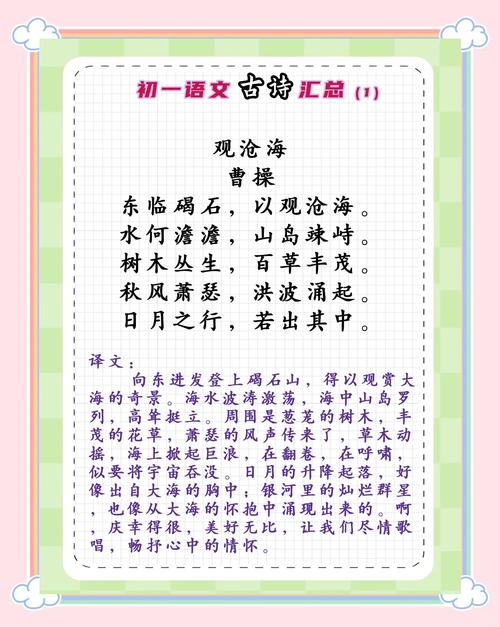 初一语文古诗汇总(1)
观沧海
曹操
东临碣石，以观沧海。
水何澹澹，山岛竦峙。
树木丛生，百草丰茂。
秋风萧瑟，洪波涌起。
日月之行，若出其中。
译文：
向东进发登上碣石山，得以观赏大
海的奇景。海水波涛激荡，海中山岛罗
列，高耸挺立。周围是葱茏的树木，丰
茂的花草，萧瑟的风声传来了，草木动
摇，海上掀起巨浪，在翻卷，在呼啸，
似要将宇宙吞没。日月的升降起落，好
像出自大海的胸中；银河里的灿烂群星
，也像从大海的怀抱中涌现出来的。啊
，庆幸得很，美好无比，让我们尽情歌
唱，畅抒心中的情怀。